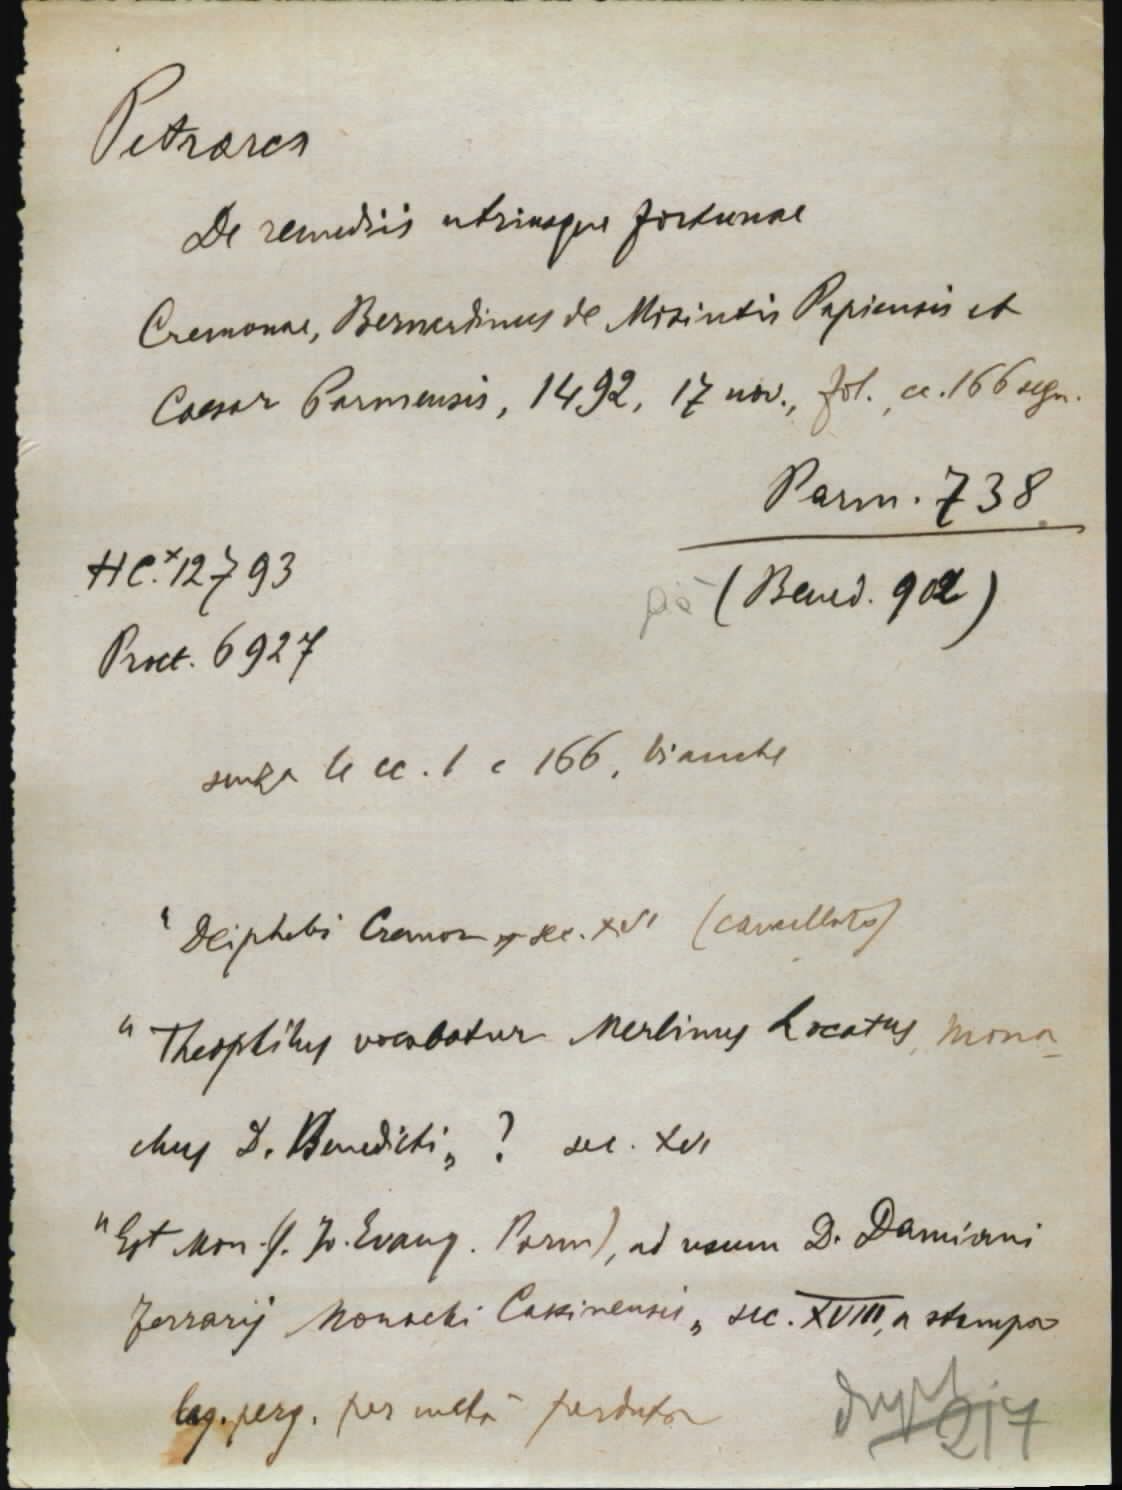 Petrarca
De remediis utriusque fortunae
Cremonae, Bernardinus de Misintis Papiensis et
Caesar Parmensis, 1492, 17 nov., fol., cc. 166 segn.
Parm. 738
HC.x12793
già (Bened. 902)
Proct. 6927
senza le cc. 1 e 166, bianche
"Deiphebi Cremon„ sec. XVI (cancellato)
"Theophilus vocabatur Merlinus Locatus, mona-
chus D. Benedicti„ ? sec. XVI
"Est Mon. S. Jo. Evang. Parm), ad usum D. Damiani
Ferrarij Monachi Casinensis„ sec. XVIII, a stampa
leg. perg. per metà perduta
217